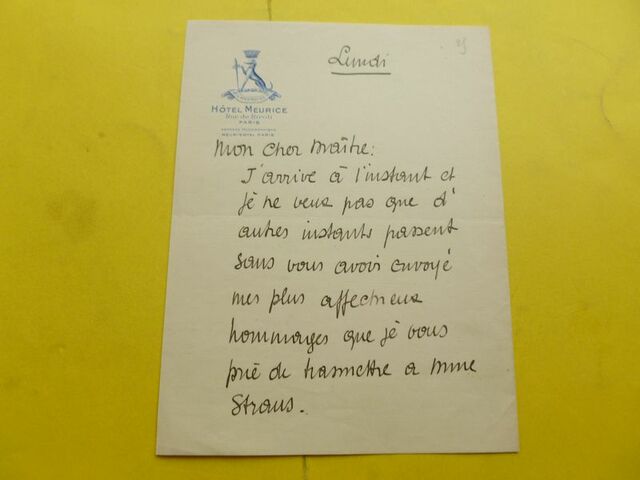 Lundi
HÔTEL MEURICE
Rue de Rivoli
PARIS
MEURISOTEL PARIS
Mon cher Maître:
J'arrive à l'instant et
je ne veux pas que d'
autres instants passent
sans vous avoir envoyé
mes plus affectueux
hommages que je vous
prie de trasmettre a Mme
Straus.